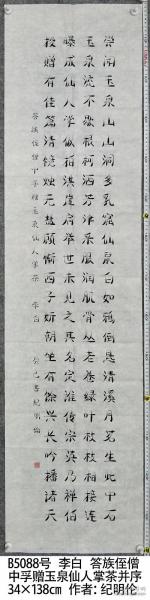 尝闻玉泉山山洞多乳窟仙鼠白如鸦倒悬清溪月茗生此中石
玉泉流不歇根柯洒芳津采服润肌骨丛老卷绿叶枝枝相接连
曝成仙人掌似拍洪崖肩举世未见之其名定谁传宗英乃禅伯
投赠有佳篇清镜烛无盐顾惭西子妍朝坐有余兴长吟播诸天
答族侄僧中孚赠玉泉仙人掌茶 李白 癸巳书纪明伦
B5088号 李白 答族侄僧
中孚赠玉泉仙人掌茶并序
34×138cm 作者:纪明伦